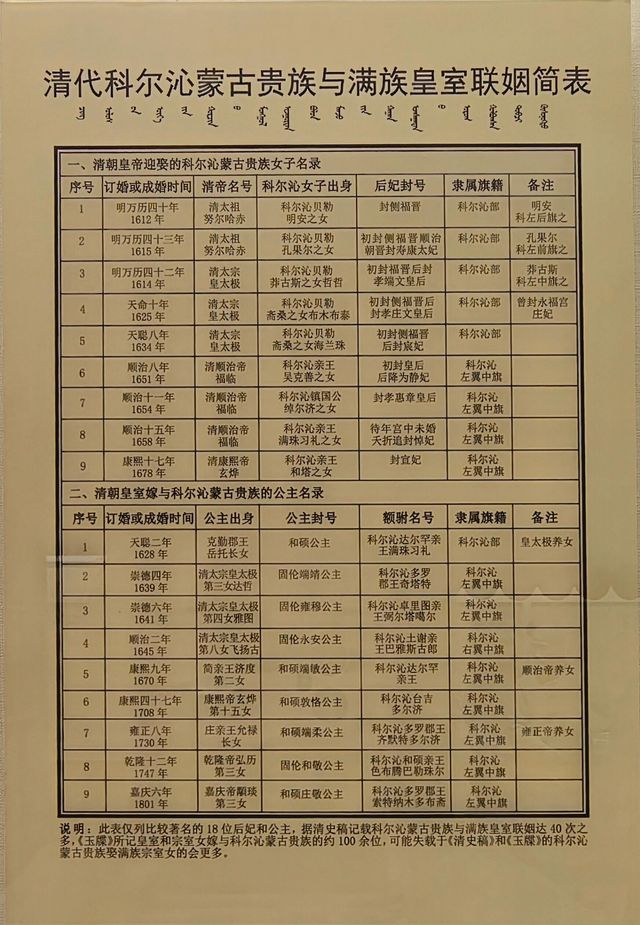 清代科尔沁蒙古贵族与满族皇室联姻简表
一、清朝皇帝迎娶的科尔沁蒙古贵族女子名录
序号 订婚或成婚时间 清帝名号 科尔沁女子出身 后妃封号 隶属旗籍 备注
1 明万历四十年 1612 年 清太祖 努尔哈赤 科尔沁贝勒 明安之女 封侧福晋 科尔沁部 明安 科左后旗之
2 明万历四十三年 1615 年 清太祖 努尔哈赤 科尔沁贝勒 孔果尔之女 初封侧福晋顺治 朝晋封寿康太妃 科尔沁部 孔果尔 科左前旗之
3 明万历四十二年 1614 年 清太宗 皇太极 科尔沁贝勒 莽古斯之女哲哲 初封福晋后封 孝端文皇后 科尔沁部 莽古斯 科左中旗之
4 天命十年 1625 年 清太宗 皇太极 科尔沁贝勒 斋桑之女布木布泰 初封侧福晋后 封孝庄文皇后 科尔沁部 曾封永福宫 庄妃
5 天聪八年 1634 年 清太宗 皇太极 科尔沁贝勒 斋桑之女海兰珠 初封侧福晋 后封宸妃 科尔沁部
6 顺治八年 1651 年 清顺治帝 福临 科尔沁亲王 吴克善之女 初封皇后 后降为静妃 科尔沁 左翼中旗
7 顺治十一年 1654 年 清顺治帝 福临 科尔沁镇国公 绰尔济之女 封孝惠章皇后 科尔沁 左翼中旗
8 顺治十五年 1658 年 清顺治帝 福临 科尔沁亲王 满珠习礼之女 待年宫中未婚 夭折追封悼妃 科尔沁 左翼中旗
9 康熙十七年 1678 年 清康熙帝 玄烨 科尔沁亲王 和塔之女 封宣妃 科尔沁 左翼中旗
二、清朝皇室嫁与科尔沁蒙古贵族的公主名录
序号 订婚或成婚时间 公主出身 公主封号 额驸名号 隶属旗籍 备注
1 天聪二年 1628 年 克勤郡王 岳托长女 和硕公主 科尔沁达尔罕亲 王满珠习礼 科尔沁部 皇太极养女
2 崇德四年 1639 年 清太宗皇太极 第三女达哲 固伦端靖公主 科尔沁多罗 郡王奇塔特 科尔沁 左翼中旗
3 崇德六年 1641 年 清太宗皇太极 第四女雅图 固伦雍穆公主 科尔沁卓里图亲 王弼尔塔噶尔 科尔沁 左翼中旗
4 顺治二年 1645 年 清太宗皇太极 第八女飞扬古 固伦永安公主 科尔沁土谢亲 王巴雅斯古郎 科尔沁 右翼中旗
5 康熙九年 1670 年 简亲王济度 第二女 和硕端敏公主 科尔沁达尔罕 亲王 科尔沁 左翼中旗 顺治帝养女
6 康熙四十七年 1708 年 康熙帝玄烨 第十五女 和硕敦恪公主 科尔沁台吉 多尔济 科尔沁 左翼中旗
7 雍正八年 1730 年 庄亲王允禄 长女 和硕端柔公主 科尔沁多罗郡王 齐默特多尔济 科尔沁 左翼中旗 雍正帝养女
8 乾隆十二年 1747 年 乾隆帝弘历 第三女 固伦和敬公主 科尔沁和硕亲王 色布腾巴勒珠尔 科尔沁 左翼中旗
9 嘉庆六年 1801 年 嘉庆帝颙琰 第三女 和硕庄敬公主 科尔沁多罗郡王 索特纳木多布斋 科尔沁 左翼中旗
说明：此表仅列比较著名的 18 位后妃和公主，据清史稿记载科尔沁蒙古贵族与满族皇室联姻达 40 次之
多，《玉牒》所记皇室和宗室女嫁与科尔沁蒙古贵族的约 100 余位，可能失载于《清史稿》和《玉牒》的科尔沁
蒙古贵族娶满族宗室女的会更多。